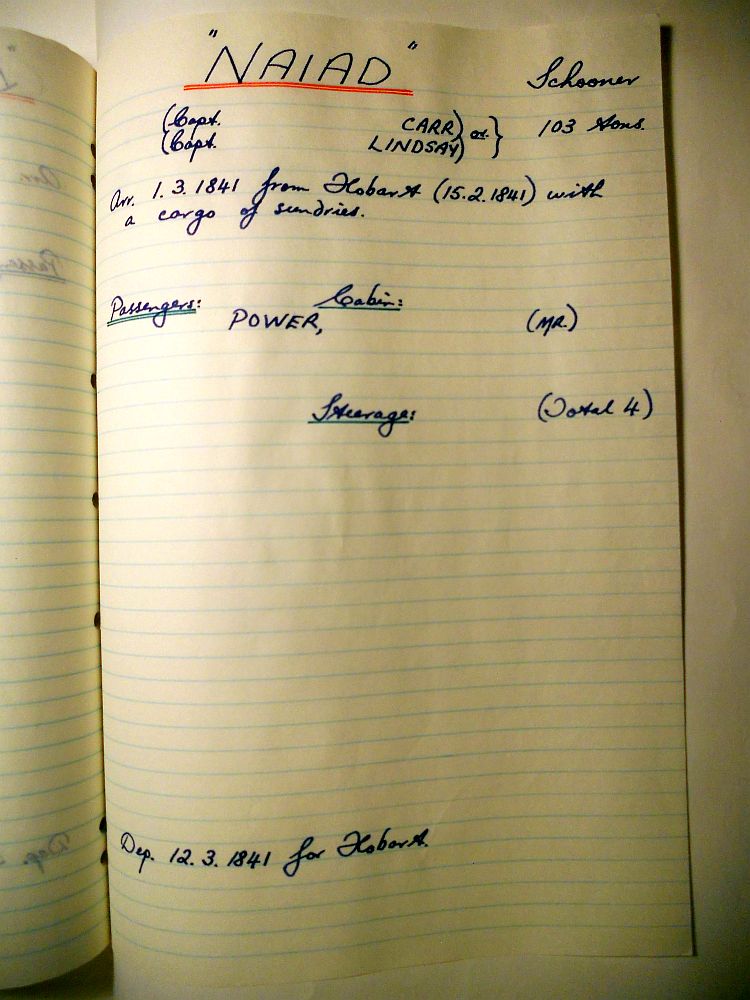 "NAIAD" Schooner
(Capt. CARR) or } 103 tons.
(Capt. LINDSAY)
Arr. 1.3.1841 from Hobart (15.2.1841) with
a cargo of sundries.
Passengers: Cabin:
POWER, (MR.)
Steerage: (Total 4)
Dep. 12.3.1841 for Hobart.